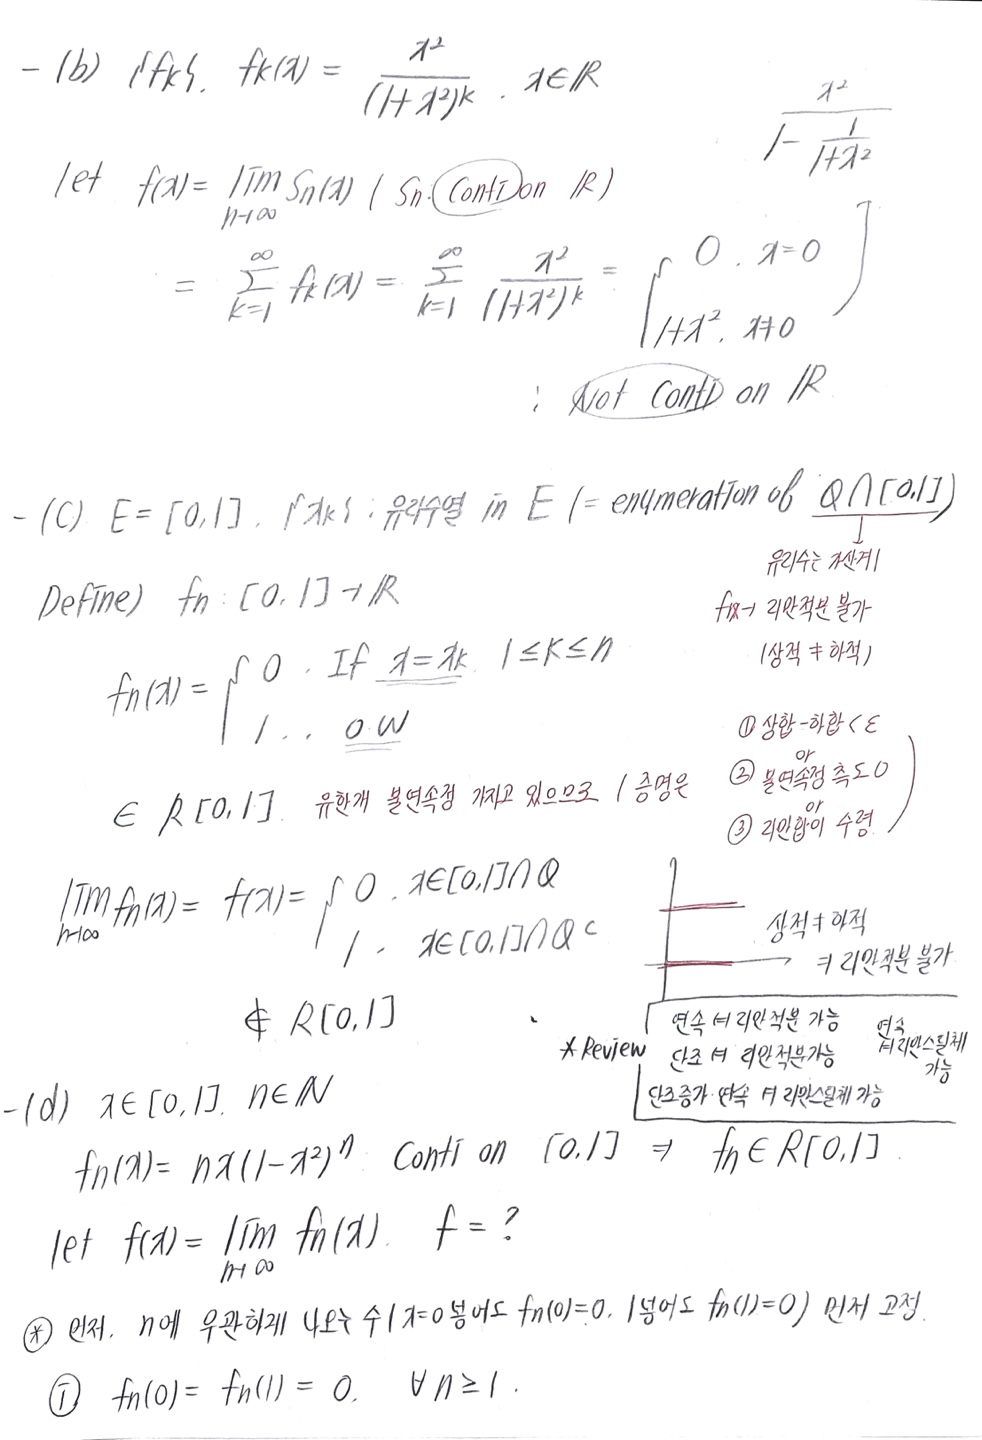 - (b) {fk}. fk(x) = x² / (1+x²)^k . x∈ℝ
x² / (1 - 1/(1+x²))
let f(x) = lim n→∞ Sn(x) ( Sn. Conti on ℝ )
= ∑ k=1 ∞ fk(x) = ∑ k=1 ∞ x² / (1+x²)^k = { 0 . x=0
1+x². x≠0
: Not Conti on ℝ
- (c) E = [0,1]. {xk} : 유리수열 in E (= enumeration of Q∩[0,1])
유리수는 가산개
Define) fn : [0,1] → ℝ
f(x)→ 리만적분 불가
(상적 ≠ 하적)
fn(x) = { 0 . If x=xk 1≤k≤n
1 . . o.w
① 상합-하합 < ε
or
② 불연속점 측도 0
or
③ 리만합이 수렴
∈ R[0,1]. 유한개 불연속점 가지고 있으므로 (증명은
lim n→∞ fn(x) = f(x) = { 0 . x∈[0,1]∩Q
1 . x∈[0,1]∩Qᶜ
∉ R[0,1]
상적 ≠ 하적
⇒ 리만적분 불가
* Review
연속 ⇒ 리만적분 가능
단조 ⇒ 리만적분가능
단조증가. 연속 ⇒ 리만스틸체 가능
연속
⇒ 리만스틸체
가능
- (d) x∈[0,1]. n∈ℕ
fn(x) = nx(1-x²)ⁿ Conti on [0,1] ⇒ fn ∈ R[0,1].
let f(x) = lim n→∞ fn(x). f = ?
⊛ 먼저. n에 무관하게 나오는 수 (x=0 넣어도 fn(0)=0. 1넣어도 fn(1)=0) 먼저 고정.
ⓘ fn(0) = fn(1) = 0. ∀n≥1.